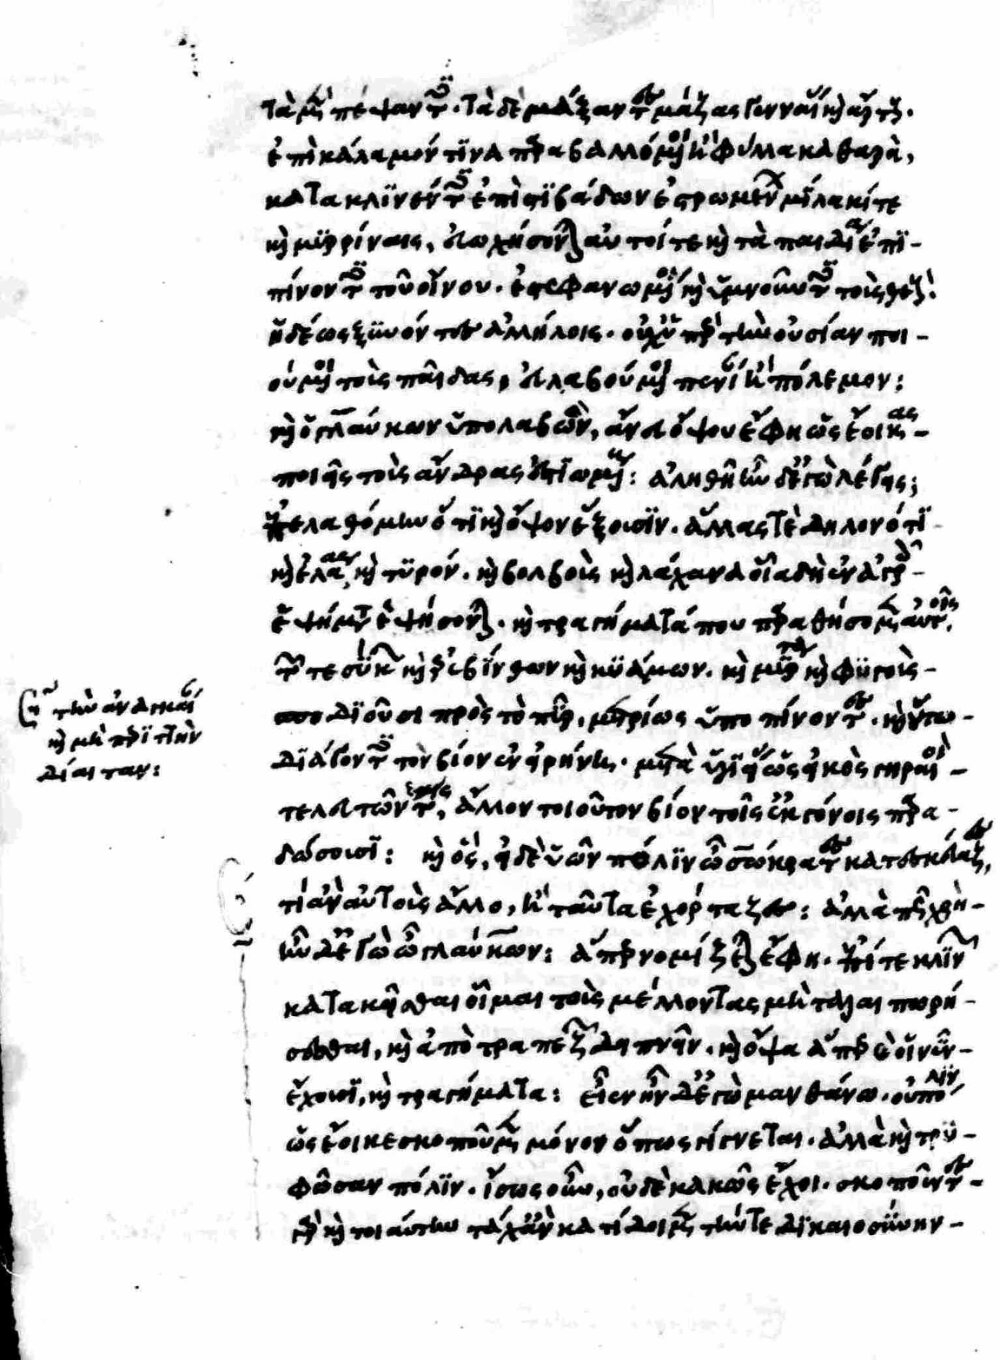 τὰ μὲν πέψαντες. τὰ δὲ μάξαντες μάζας γενναίας καὶ ἄρτους.
ἐπὶ κάλαμόν τινα παραβαλλόμενοι ἢ φύλλα καθαρὰ,
κατακλινέντες ἐπὶ στιβάδων ἐστρωμένων μίλακί τε
καὶ μυρρίναις, εὐωχήσονται αὐτοί τε καὶ τὰ παιδία ἐπι-
πίνοντες τοῦ οἴνου. ἐστεφανωμένοι καὶ ὑμνοῦντες τοὺς θεούς.
ἡδέως ξυνόντες ἀλλήλοις. οὐχ ὑπὲρ τὴν οὐσίαν ποι-
ούμενοι τοὺς παῖδας, εὐλαβούμενοι πενίαν ἢ πόλεμον:
καὶ ὁ γλαύκων ὑπολαβὼν, ἄνευ ὄψου ἔφη ὡς ἔοικας
ποιεῖς τοὺς ἄνδρας ἑστιωμένους: ἀληθῆ ἦν δ' ἐγὼ λέγεις;
ἐπελαθόμην ὅτι καὶ ὄψον ἕξουσιν. ἅλας τε δηλονότι
καὶ ἐλάας καὶ τυρόν. καὶ βολβοὺς καὶ λάχανα οἷα δὴ ἐν ἀγροῖς
ἑψήματα ἑψήσονται. καὶ τραγήματά που παραθήσομεν αὐτοῖς.
τῶν τε σύκων καὶ ἐρεβίνθων καὶ κυάμων. καὶ μύρτα καὶ φηγοὺς
σποδιοῦσι πρὸς τὸ πῦρ, μετρίως ὑποπίνοντες. καὶ οὕτω
διάγοντες τὸν βίον ἐν εἰρήνῃ. μετὰ ὑγιείας ὡς εἰκὸς γηραιοὶ
τελευτῶντες, ἄλλον τοιοῦτον βίον τοῖς ἐκγόνοις παρα-
δώσουσι: καὶ ὅς, εἰ δὲ ὑῶν πόλιν ὦ σώκρατες κατεσκεύαζες,
τί ἂν αὐτοὺς ἄλλο, ἢ ταῦτα ἐχόρταζες: ἀλλὰ πῶς χρὴ
ἦν δ' ἐγὼ ὦ γλαύκων: ἅπερ νομίζεται ἔφη. ἐπί τε κλινῶν
κατακεῖσθαι οἶμαι τοὺς μέλλοντας μὴ ταλαιπωρεῖ-
σθαι, καὶ ἀπὸ τραπεζῶν δειπνεῖν. καὶ ὄψα ἅπερ οἱ νῦν
ἔχουσι, καὶ τραγήματα: εἶεν ἦν δ' ἐγὼ μανθάνω. οὐ πόλιν
ὡς ἔοικε σκοποῦμεν μόνον ὅπως γίγνεται. ἀλλὰ καὶ τρυ-
φῶσαν πόλιν. ἴσως οὖν, οὐδὲ κακῶς ἔχει. σκοποῦντες
γὰρ καὶ τοιαύτην τάχ' ἂν κατίδοιμεν τήν τε δικαιοσύνην
τὴν ἀναγκαίαν
καὶ μὴ περιττὴν
δίαιταν: